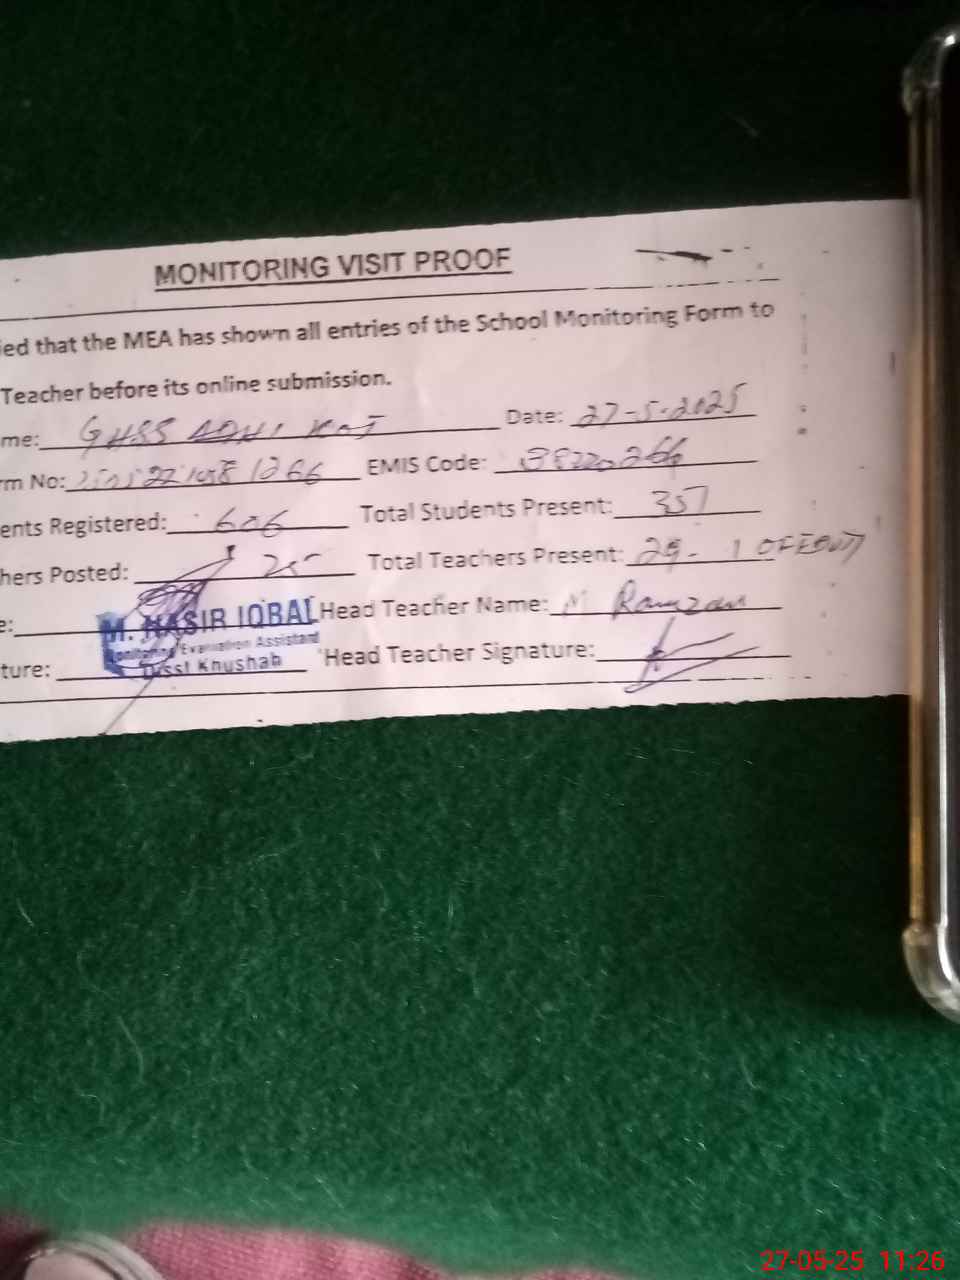 MONITORING VISIT PROOF
ied that the MEA has shown all entries of the School Monitoring Form to
Teacher before its online submission.
me: GHSS Kot Date: 27-5-2025
rm No: EMIS Code: 38220266
ents Registered: 606 Total Students Present: 357
hers Posted: 25 Total Teachers Present: 1
e: M. NASIR IQBAL Head Teacher Name: M Ramzan
Monitoring Evaluation Assistant
ture: Disst Khushab Head Teacher Signature:
27-05-25 11:26